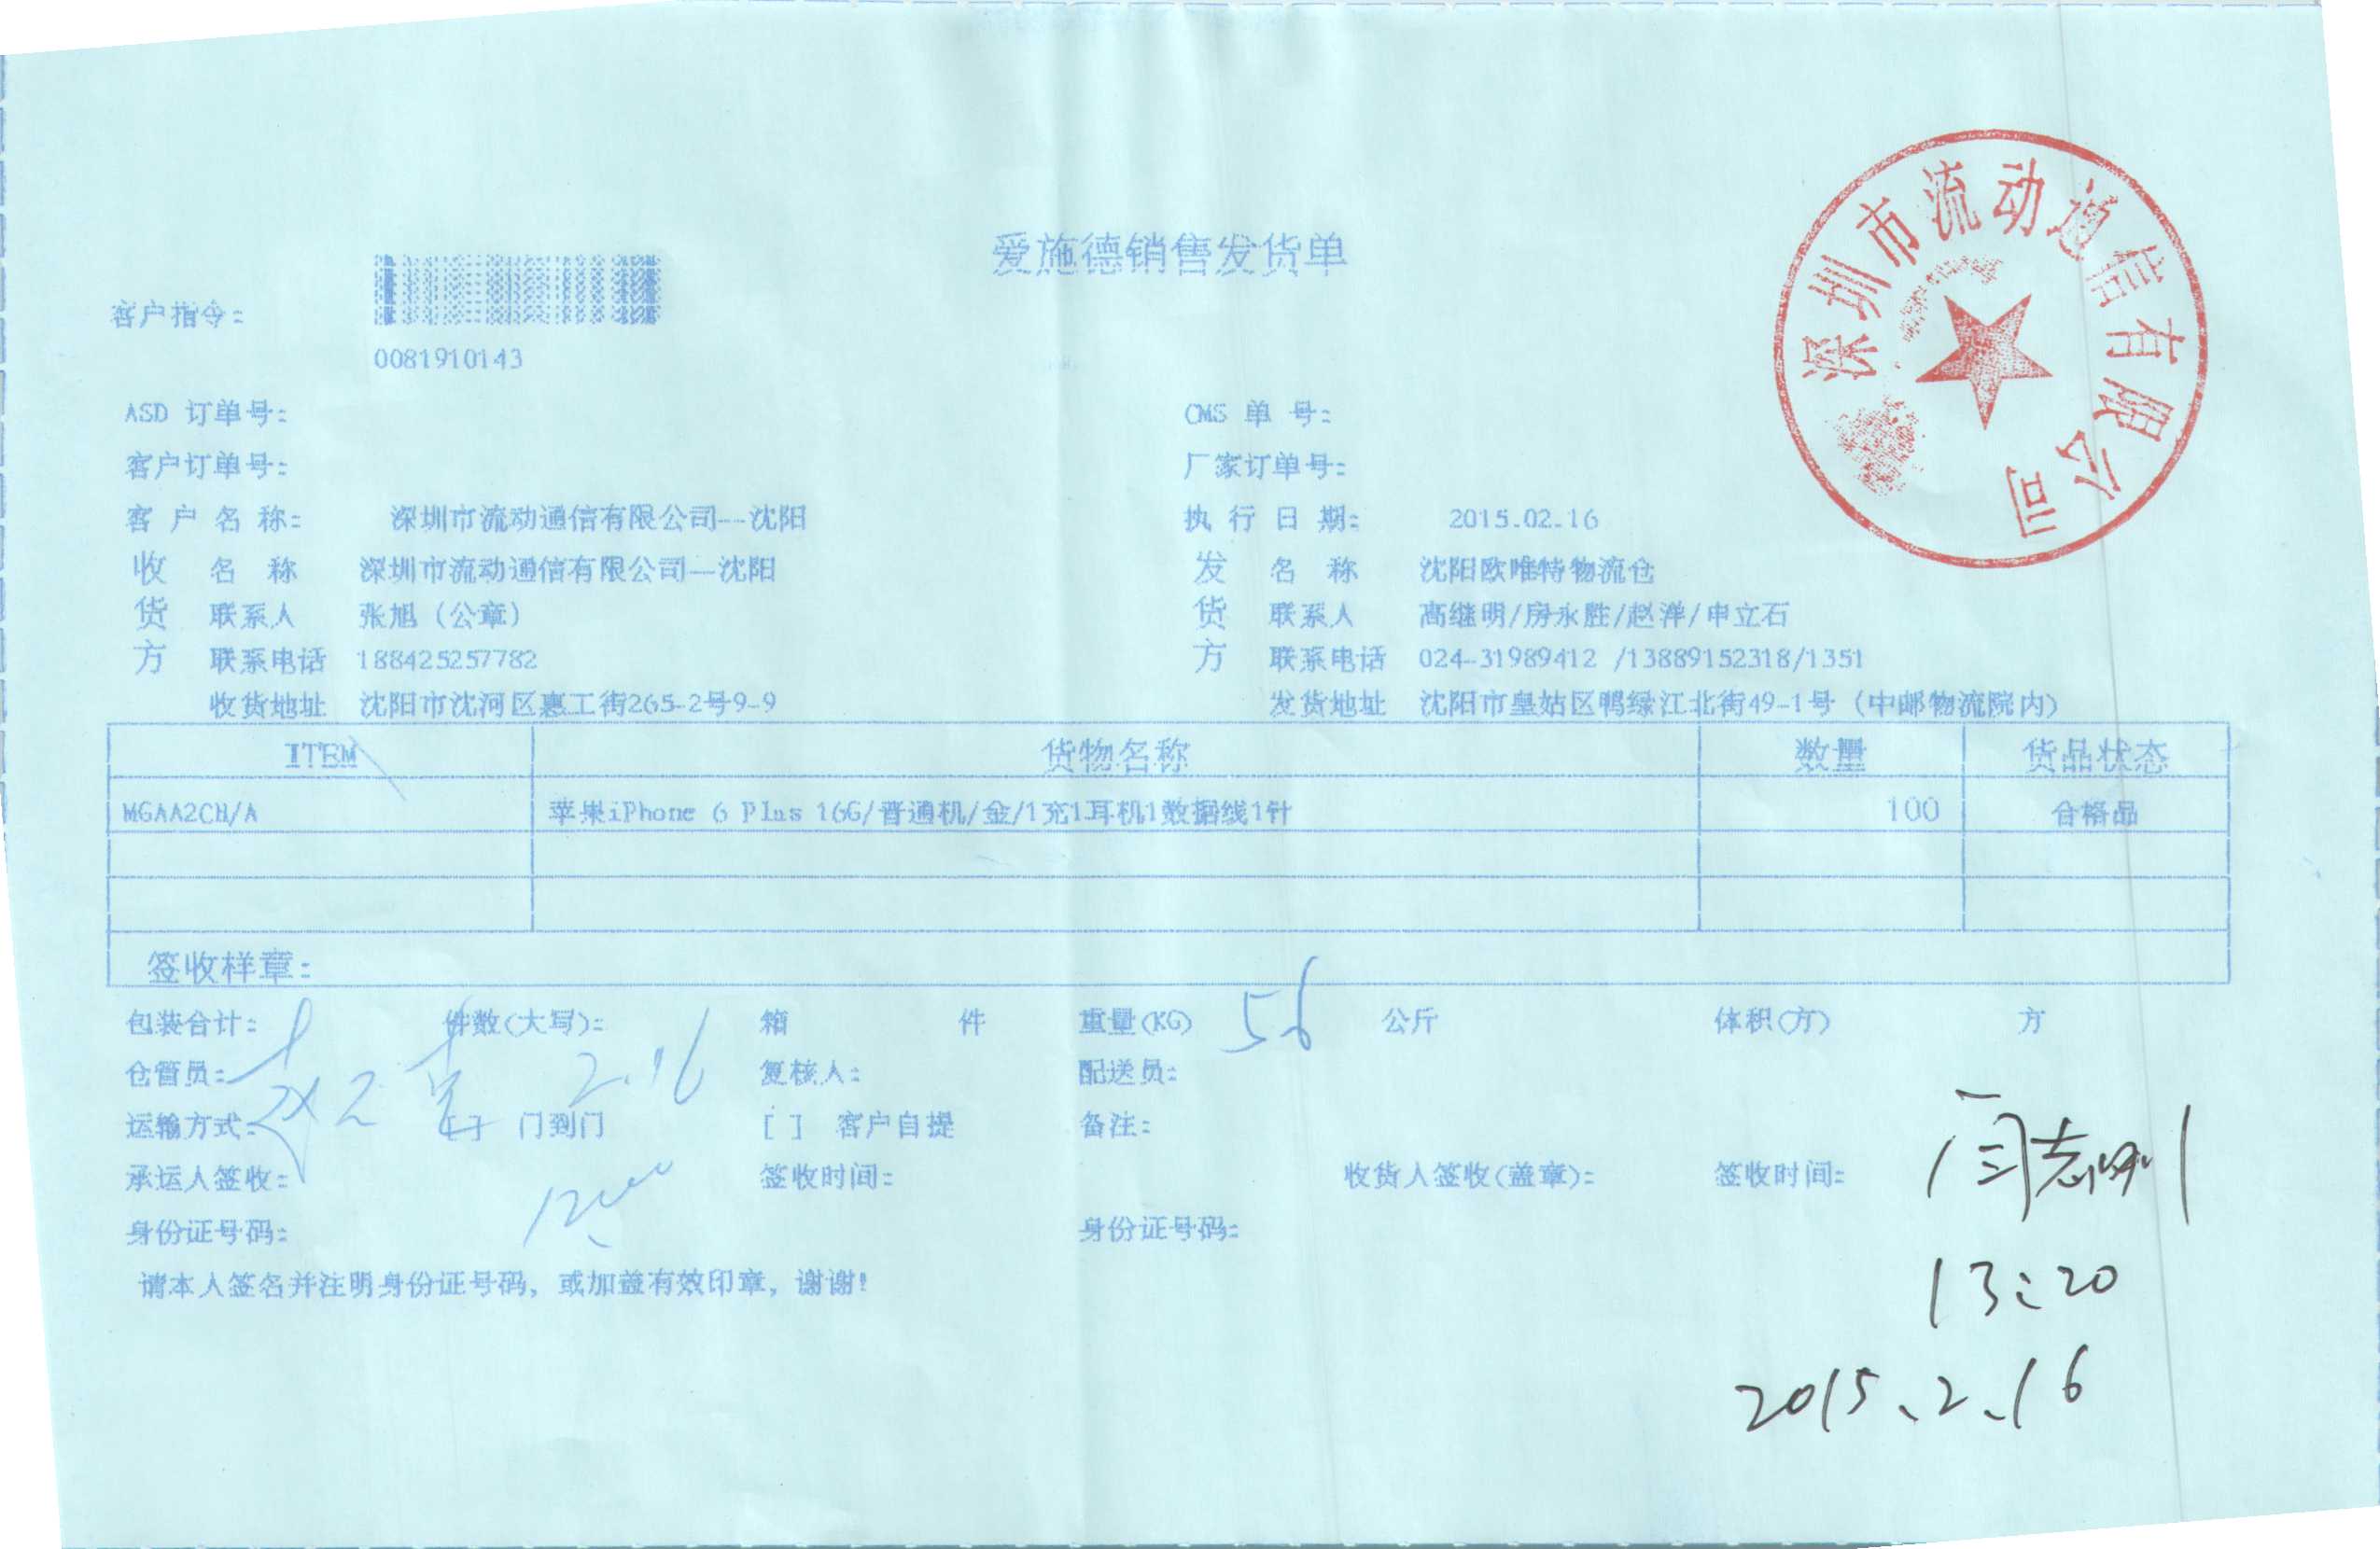 爱施德销售发货单
深圳市流动通信有限公司
客户指令:
0081910143
ASD 订单号: CMS 单 号:
客户订单号: 厂家订单号:
客 户 名 称: 深圳市流动通信有限公司--沈阳 执 行 日 期: 2015.02.16
收 名 称 深圳市流动通信有限公司—沈阳 发 名 称 沈阳欧唯特物流仓
货 联系人 张旭 (公章) 货 联系人 高继明/房永胜/赵洋/申立石
方 联系电话 188425257782 方 联系电话 024-31989412 /13889152318/1351
收货地址 沈阳市沈河区惠工街265-2号9-9 发货地址 沈阳市皇姑区鸭绿江北街49-1号 (中邮物流院内)
ITEM 货物名称 数量 货品状态
MGAA2CH/A 苹果iPhone 6 Plus 16G/普通机/金/1充1耳机1数据线1针 100 合格品
签收样章:
包装合计: 件数(大写): 箱 件 重量(KG) 56 公斤 体积(方) 方
仓管员: 2.16 复核人: 配送员:
运输方式: [ ] 门到门 [ ] 客户自提 备注:
承运人签收: 签收时间: 收货人签收(盖章): 签收时间:
身份证号码: 身份证号码:
请本人签名并注明身份证号码, 或加盖有效印章, 谢谢!
13:20
2015.2.16